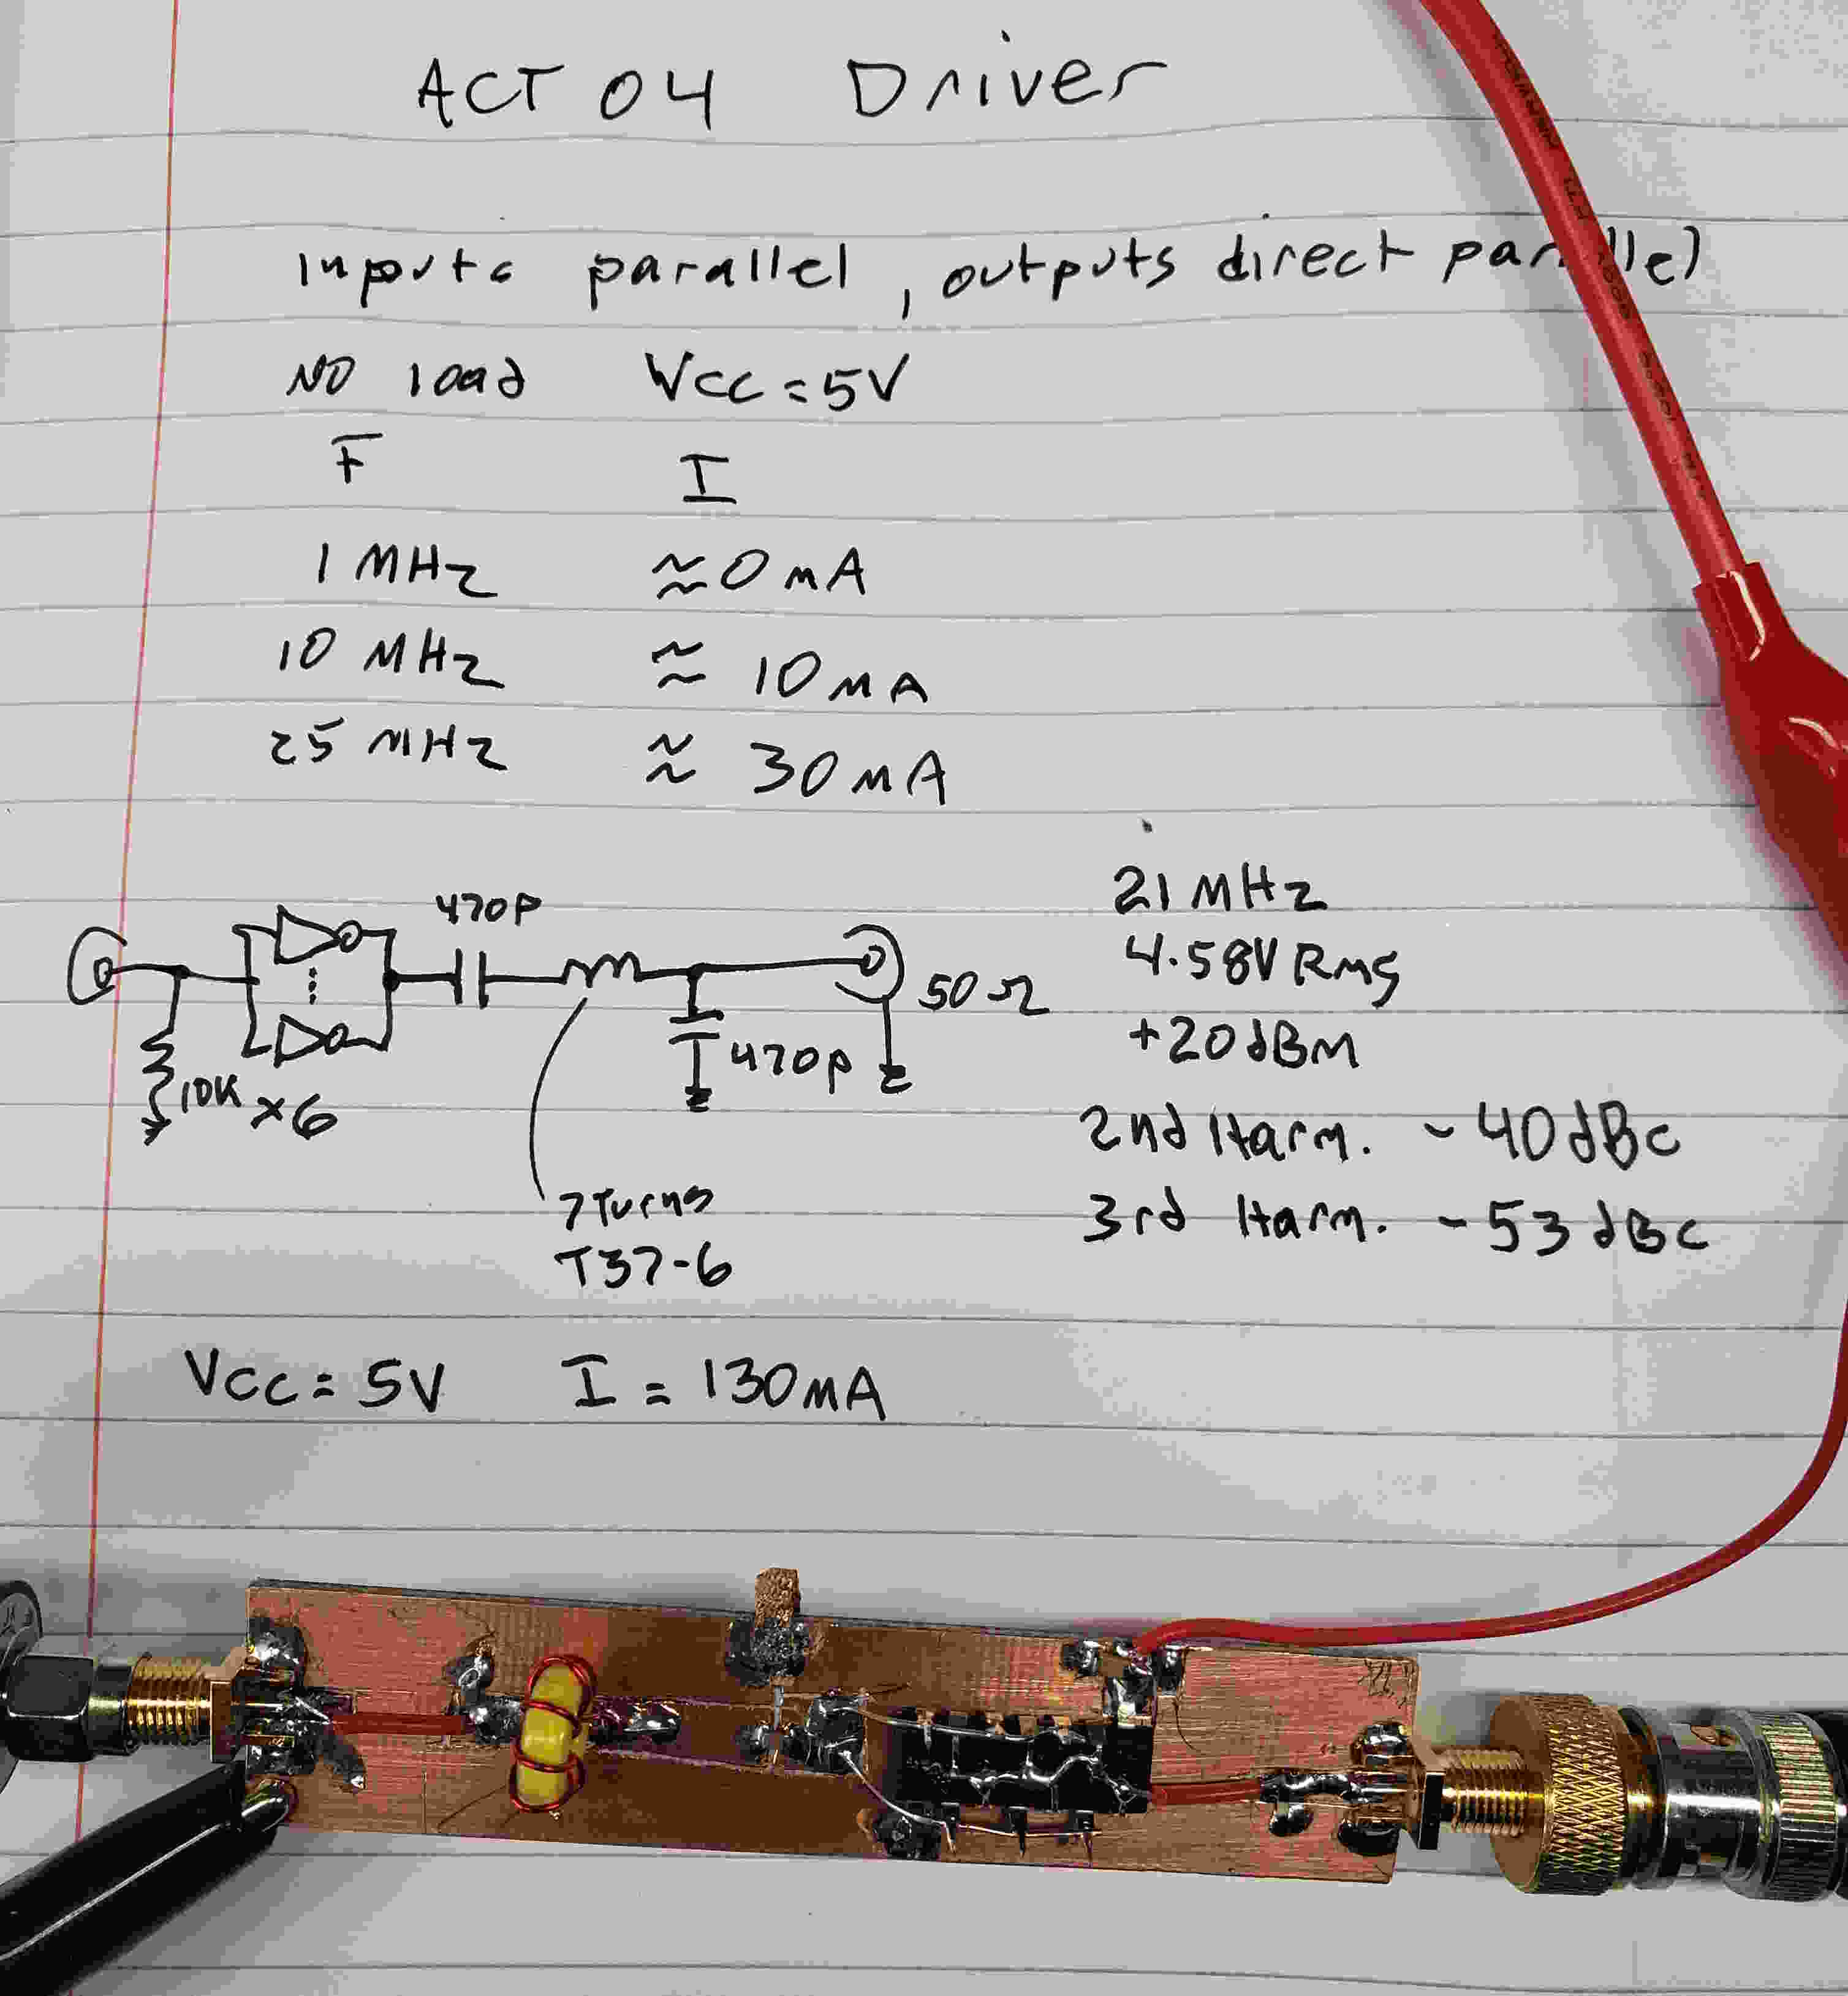 ACT 04 Driver
Inputs parallel, outputs direct parallel
NO load Vcc = 5V
F I
1 MHz ≈ 0 mA
10 MHz ≈ 10 mA
25 MHz ≈ 30 mA
470p
10K
x6
470p
50Ω
7 Turns
T37-6
21 MHz
4.58V Rms
+20dBm
2nd Harm. -40dBc
3rd Harm. -53dBc
Vcc = 5V I = 130mA